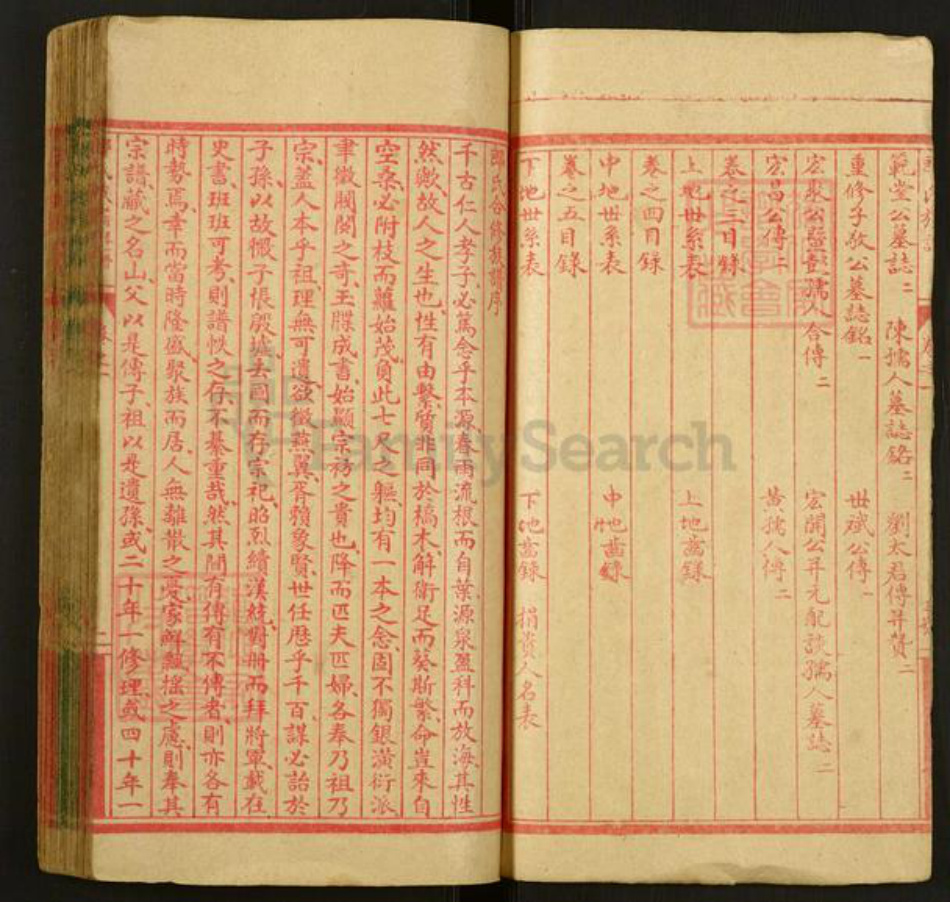 範堂公墓誌二 陳孺人墓誌銘二 劉太君傳并贊二
重修子敬公墓誌銘一 世斌公傳一
宏聚公暨彭孺人合傳二 宏開公并元配談孺人墓誌二
宏昌公傳二 黃孺人傳二
卷之三目錄
上地世系表 上地齒錄
卷之四目錄
中地世系表 中地齒錄
卷之五目錄
下地世系表 下地齒錄 捐貲人名表
氏合修族譜序
千古仁人孝子必篤念乎本源春雨流根而自葉源泉盈科而放海其性
然歟故人之生也性有由繫質非同於槁木解衛足而葵斯繁命豈來自
空桑必附枝而蘿始茂負此七尺之軀均有一本之念固不獨銀潢衍派
聿徵閥閱之奇玉牒成書始顯宗祊之貴也降而匹夫匹婦各奉乃祖乃
宗蓋人本乎祖理無可遺欲徵燕翼胥賴象賢世任歷乎千百謀必詒於
子孫以故微子張殷墟去國而存宗祀昭烈續漢統對冊而拜將軍載在
史書班班可考則譜帙之存不綦重哉然其間有傳有不傳者則亦各有
時勢焉幸而當時隆盛聚族而居人無離散之憂家鮮飄搖之慮則奉其
宗譜藏之名山父以是傳子祖以是遺孫或二十年一修理或四十年一
FamilySearch